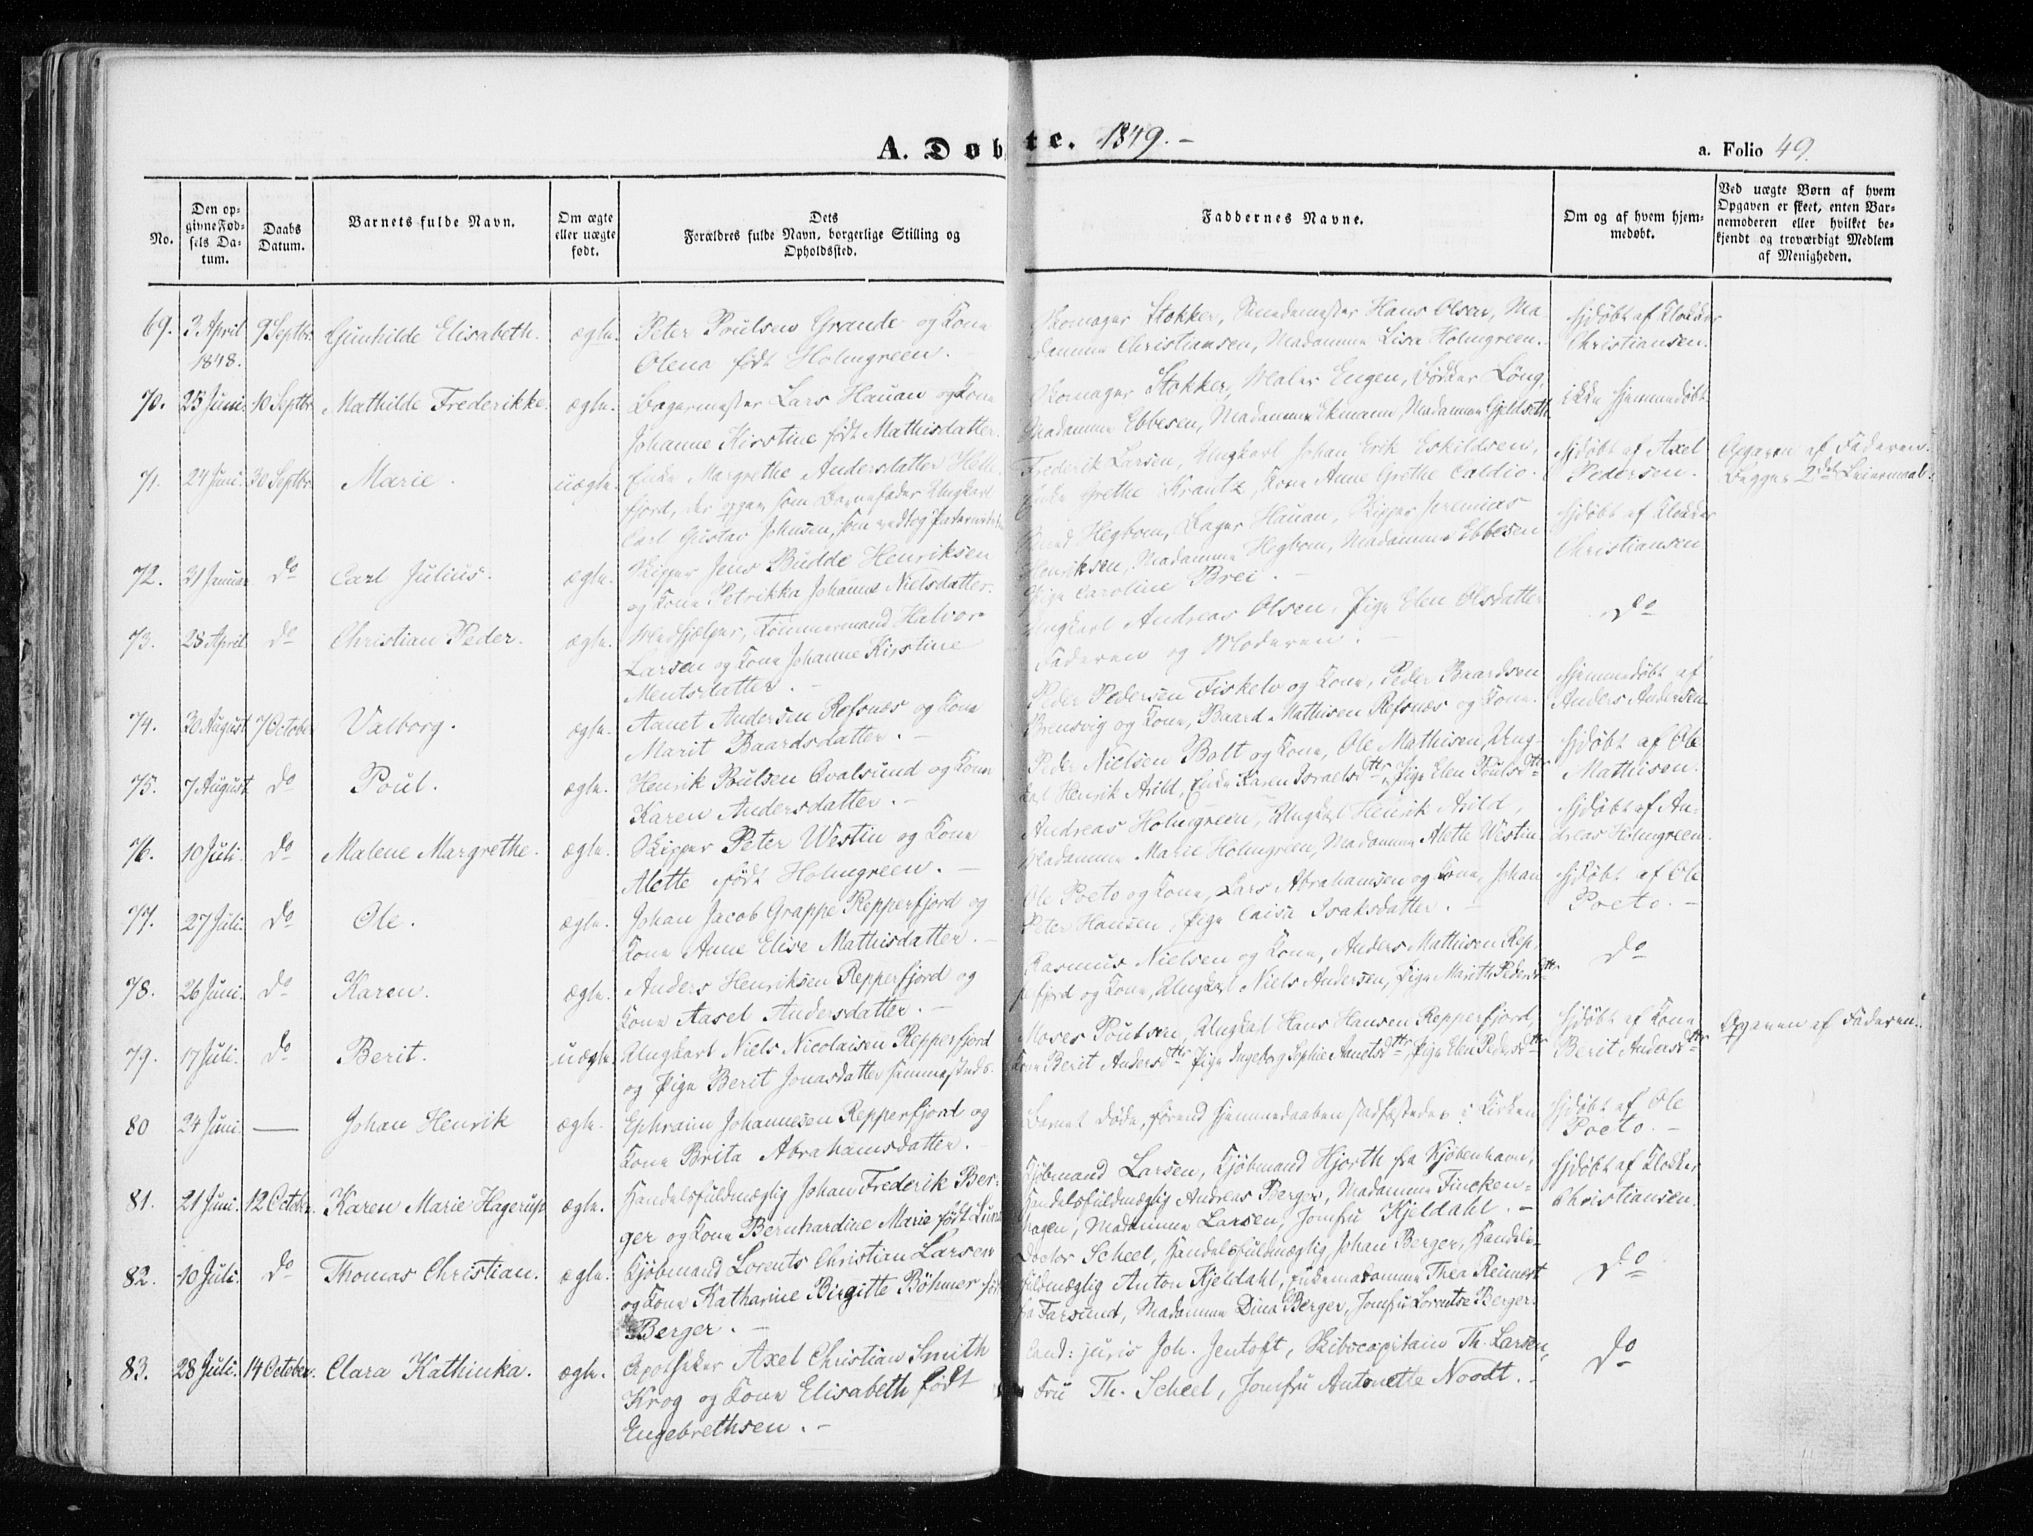 A. Døbte. 1849.-
a. Folio 49.
No.
Den op-
givne Fød-
sels Da-
tum.
Daabs
Datum.
Barnets fulde Navn.
Om ægte
eller uægte
født.
Dets
Forældres fulde Navn, borgerlige Stilling og
Opholdssted.
Faddernes Navne.
Om og af hvem hjem-
medøbt.
Ved uægte Børn af hvem
Opgaven er skeet, enten Bar-
nemoderen eller hvilket be-
kjendt og troværdigt Medlem
af Menigheden.
69. 3 April 9 Septbr. Gunhilde Elisabeth. ægte. Peter Poulsen Grande og Kone Skomager Stokker, Smedemester Hans Olsen, Ma- hjdøbt af Klokker
1848. Olena født Holmgreen. damme Christiansen, Madamme Lisa Holmgreen. Christiansen.
70. 25 Juni. 10 Septbr. Mathilde Frederikke. ægte. Bagermester Lars Hauan og Kone Skomager Stokker, Maler Engen, Bødker Löng, ikke hjemmedøbt.
Johanne Kirstine født Mathisdatter. Madamme Ebbesen, Madamme Ekmann, Madamme Gjeldseth.
71. 24 Juni. 30 Septbr. Marie. uægte. Enke Margrethe Andersdatter Frederik Larsen, Ungkarl Johan Erik Eskildsen, hjdøbt af Axel Opgaven af Faderen.
fjord, der opgav som Barnefader Ungkarl Enke Grethe Krantz, Kone Anne Grethe Caldio. Pedersen. Begges 2det Leiermaal.
Carl Gustav Johnsen, som vedtog Paternitetet.
72. 31 Januar. do Carl Julius. ægte. Skipper Jens Budde Henriksen Hegbom, Bager Hauan, Skipper Jeremias hjdøbt af Klokker
og Kone Petrikka Johanne Nielsdatter. Henriksen, Madamme Hegbom, Madamme Ebbesen Christiansen
Pige Caroline Brei.-
73. 28 April. do Christian Peder. ægte. Medhjelper, Tømmermand Halvor Ungkarl Andreas Olsen, Pige Elen Olsdatter do
Larsen og Kone Johanne Kirstine Faderen og Moderen.-
Mentsdatter.-
74. 30 August 7 October Valborg. ægte. Aanet Andersen Refsnæs og Kone Peder Pedersen Fiskelv og Kone, Peder Baardsen hjemmedøbt af
Marit Baardsdatter.- Brensvig og Kone, Baard Mathisen Refsnæs og Kone. Anders Andersen
75. 7 August do Poul. ægte. Henrik Pulsen Qvalsund og Kone Peder Nielsen Bott og Kone, Ole Mathisen, Ung- hjdøbt af Ole
Karen Andersdatter.- karl Henrik Arild, Enke Karen Israelsdttr, Pige Elen Poulsdttr Mathisen.
76. 10 Juli. do Malene Margrethe. ægte. Skipper Peter Westin og Kone Andreas Holmgreen, Ungkarl Henrik Arild, hjdøbt af An-
Alette født Holmgreen.- Madamme Marie Holmgreen, Madamme Alette Westin dreas Holmgreen.
77. 27 Juli. do Ole. ægte. Johan Jacob Grappe Repperfjord og Ole Poeto og Kone, Lars Abrahamsen og Kone, Johan hjdøbt af Ole
Kone Anne Elise Mathisdatter.- Peter Hansen, Pige Caise Isaksdatter.- Poeto.-
78. 26 Juni. do Karen. ægte. Anders Henriksen Repperfjord og Rasmus Nielsen og Kone, Anders Mathisen Rep- do
Kone Aasel Andersdatter.- perfjord og Kone, Ungkarl Niels Andersen, Pige Marith Pedersdttr
79. 17 Juli. do Berit. uægte Ungkarl Niels Nicolaisen Repperfjord Moses Poulsen, Ungkarl Hans Hansen Repperfjord, hjdøbt af Kone Opgaven af Faderen.
og Pige Berit Jonasdatter sammesteds. Kone Berit Andersdttr Pige Ingeborg Sophie Anetsdttr, Pige Elen Pedersdttr Berit Andersdttr
80 24 Juni. — Johan Henrik ægte. Ephraim Johannesen Repperfjord og Barnet døde, førend Hjemmedaaben stadfæstedes i Kirken hjdøbt af Ole
Kone Brita Abrahamsdatter.- Poeto.-
81. 21 Juni. 12 October. Karen Marie Hagerup ægte. Handelsfuldmægtig Johan Frederik Ber- Kjøbmand Larsen, Kjøbmand Hjorth fra Kjøbenhavn, hjdøbt af Klokker
ger og Kone Bernhardine Marie født Lund Handelsfuldmægtig Andreas Berger, Madamme Fincken- Christiansen.
hagen, Madamme Larsen, Jomfru Kjeldahl.-
82. 10 Juli. do Thomas Christian. ægte. Kjøbmand Lorents Christian Larsen Doctor Scheel, Handelsfuldmægtig Johan Berger, Handels- do
og Kone Katharine Birgitte Böhmer født fuldmægtig Anton Kjeldahl, Enkemadamme Thea Reimert
Berger.- fra Farsund, Madamme Dina Berger, Jomfru Lorentse Berger.
83. 28 Juli. 14 October. Clara Kathinka. ægte. Apotheker Axel Christian Smith Cand: juris Joh. Jentoft, Skibscapitain Th. Larsen, do
Krog og Kone Elisabeth født Fru Th. Scheel, Jomfru Antonette Noodt.-
Engebrethsen.-